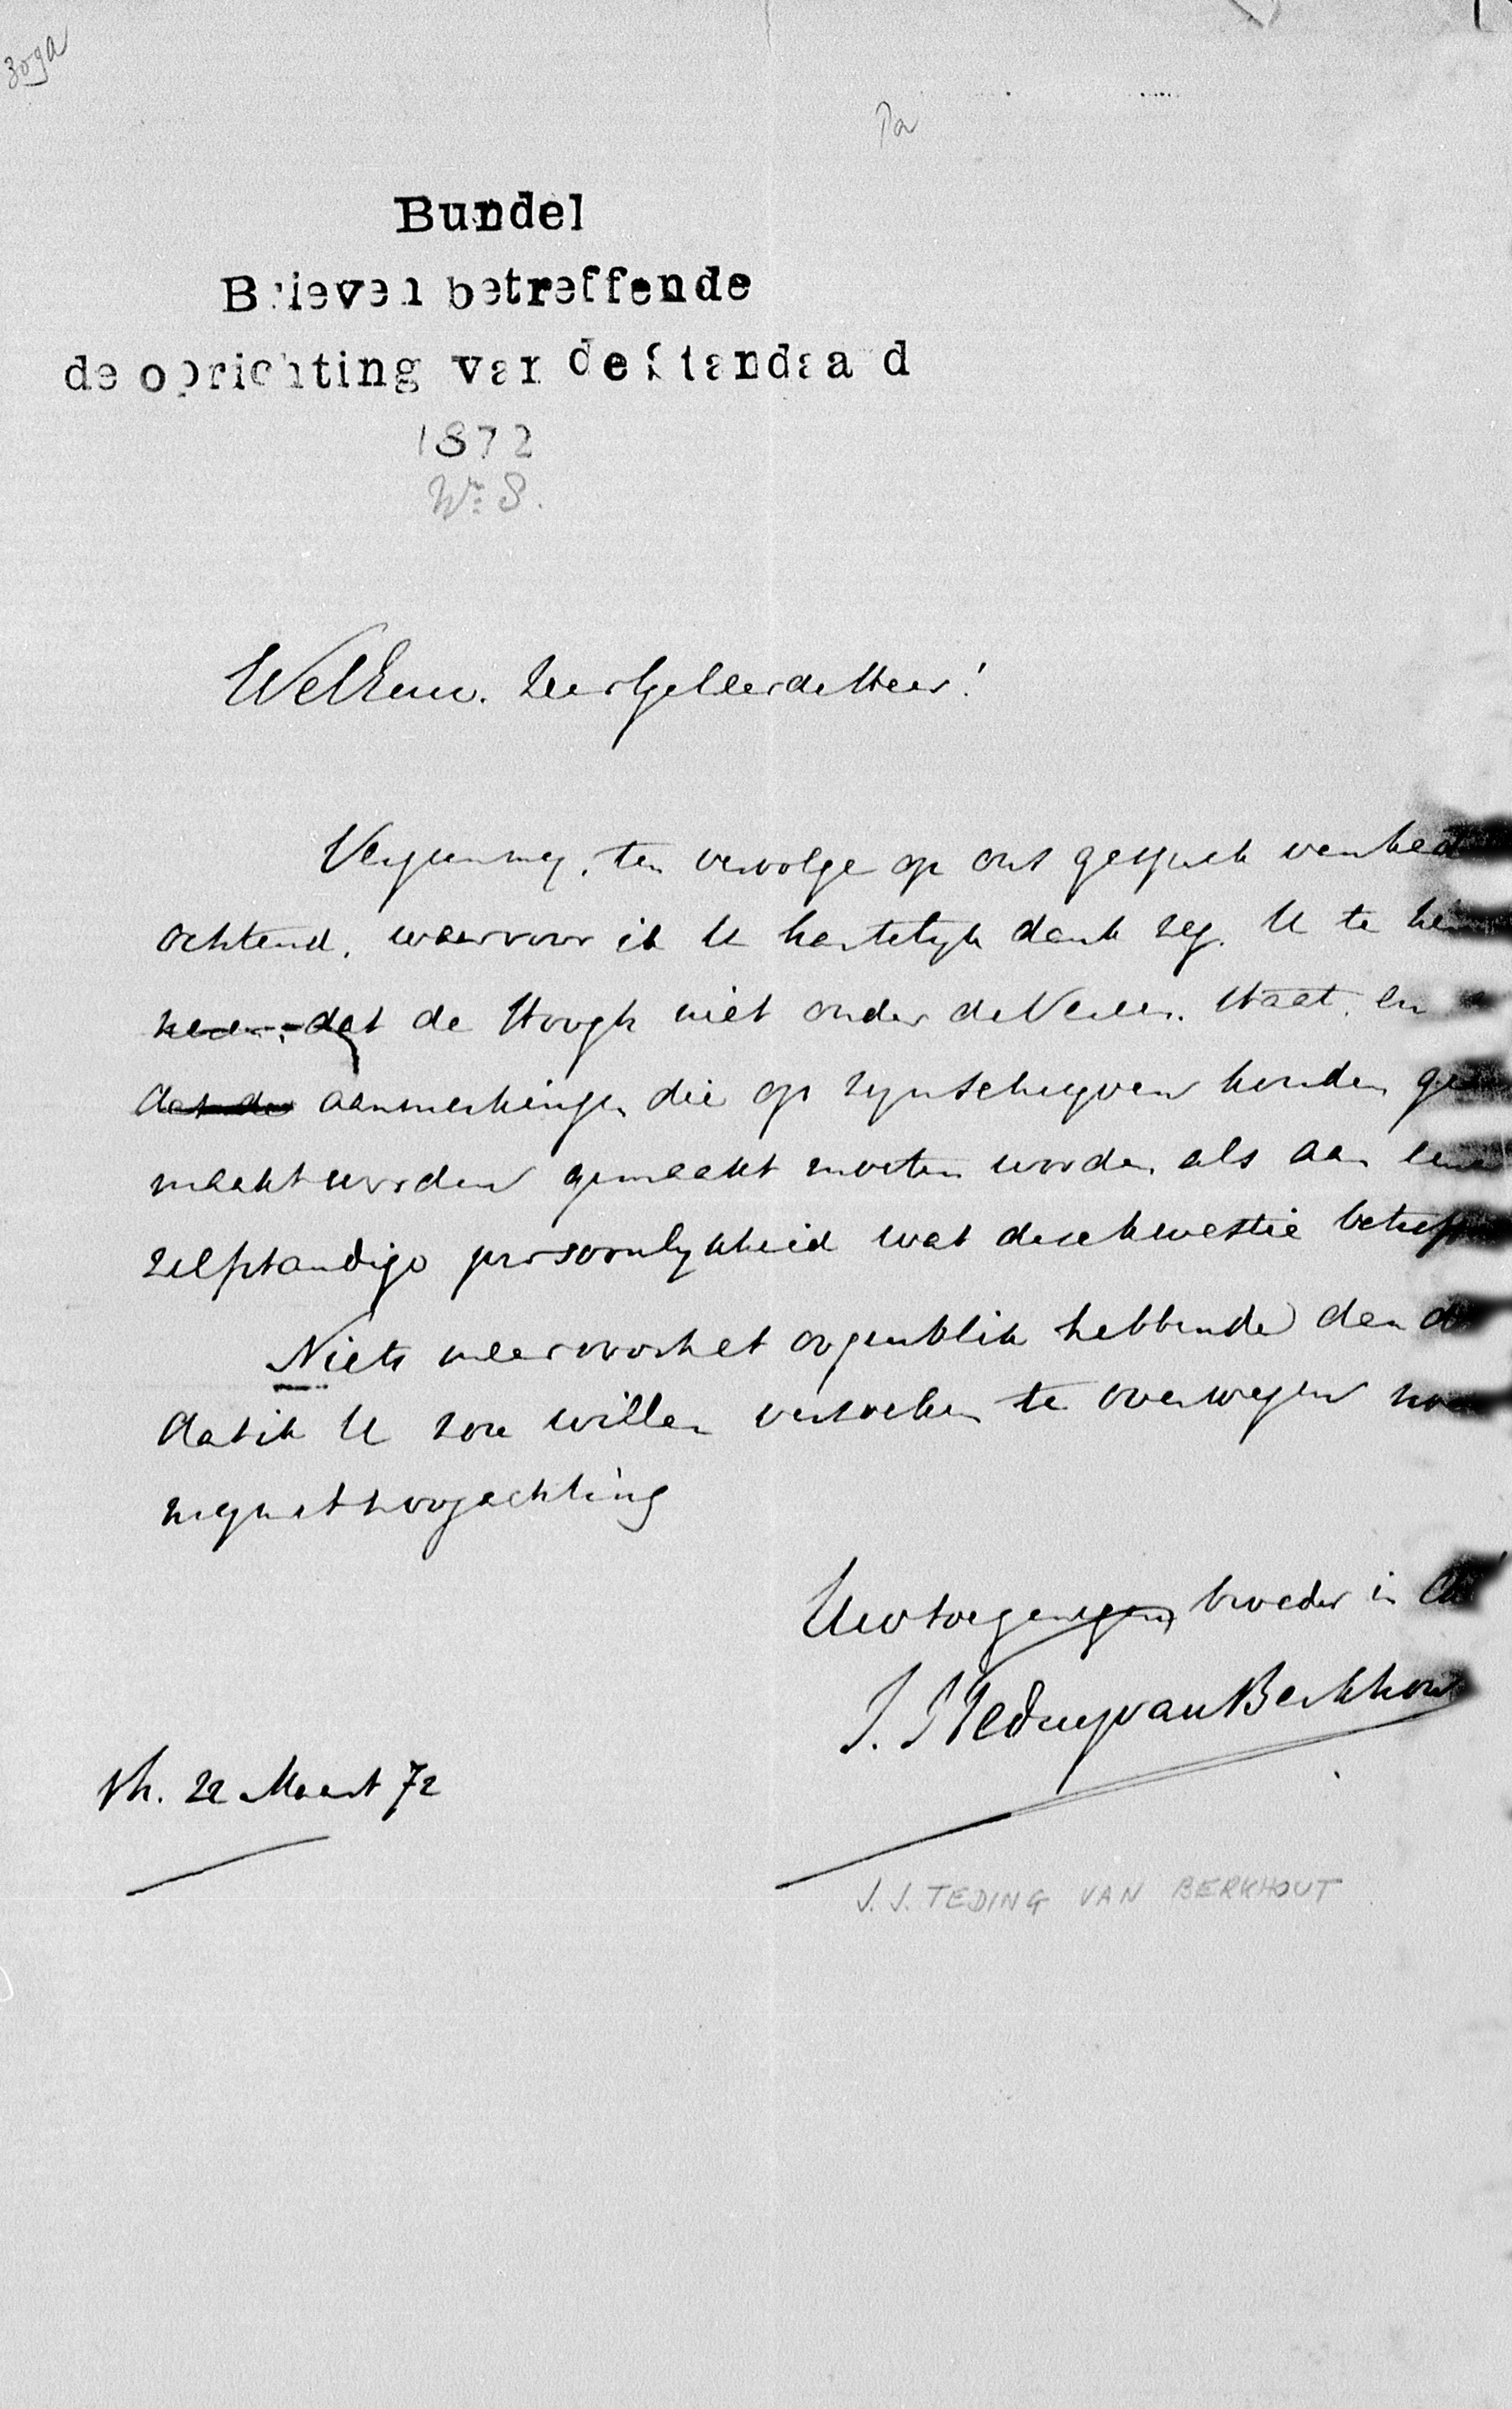 309a
Pa
Bundel
Brieven betreffende
de oprichting van de Standaard
1872
Wel Eerw. Zeer Geleerde Heer!
Vergun my, ten vervolge op ons gesprek van hed
ochtend, waarvoor ik U hartelyk dank zeg. U te
dat de Hoogh niet onder de Vereen. staat, en
dat de aanmerkingen die op zyn schryven konden ge
maakt worden gemaakt moeten worden als aan eene
zelfstandige persoonlykheid wat deze kwestie betreft
Niets meer voor het oogenblik hebbende dan d
dat ik U zou willen verzoeken te overwegen noe
my met hoogachting
Uw toegenegen broeder in Ch
J. J Teding van Berkhout
22 Maart 72
J. J. TEDING VAN BERKHOUT